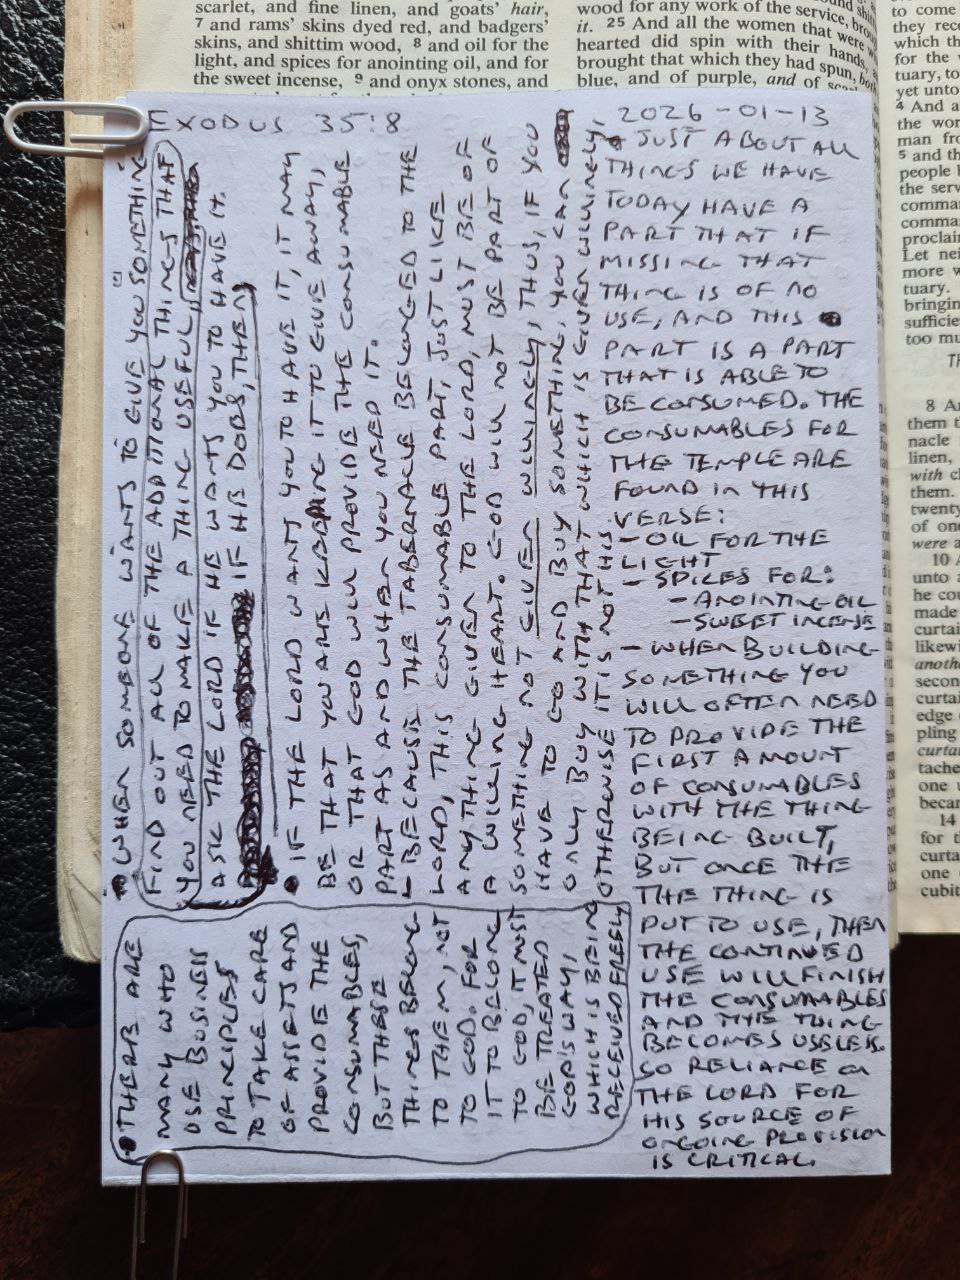 scarlet, and fine linen, and goats' hair,
7 and rams' skins dyed red, and badgers'
skins, and shittim wood, 8 and oil for the
light, and spices for anointing oil, and for
the sweet incense, 9 and onyx stones, and
wood for any work of the service,
it. 25 And all the women that were
hearted did spin with their hands,
brought that which they had spun,
blue, and of purple, and of
EXODUS 35:8
2026-01-13
JUST ABOUT ALL
THINGS WE HAVE
TODAY HAVE A
PART THAT IF
MISSING THAT
THING IS OF NO
USE, AND THIS
PART IS A PART
THAT IS ABLE TO
BE CONSUMED. THE
CONSUMABLES FOR
THE TEMPLE ARE
FOUND IN THIS
VERSE:
- OIL FOR THE
LIGHT
- SPICES FOR:
- ANOINTING OIL
- SWEET INCENSE
- WHEN BUILDING
SOMETHING YOU
WILL OFTEN NEED
TO PROVIDE THE
FIRST AMOUNT
OF CONSUMABLES
WITH THE THING
BEING BUILT,
BUT ONCE THE
THE THING IS
PUT TO USE, THEN
THE CONTINUED
USE WILL FINISH
THE CONSUMABLES
AND THE THING
BECOMES USELESS.
SO RELIANCE ON
THE LORD FOR
HIS SOURCE OF
ONGOING PROVISION
IS CRITICAL.
• WHEN SOMEONE WANTS TO GIVE YOU SOMETHING
FIND OUT ALL OF THE ADDITIONAL THINGS THAT
YOU NEED TO MAKE A THING USEFUL,
ASK THE LORD IF HE WANTS YOU TO HAVE IT.
IF HE DOES, THEN
• IF THE LORD WANT YOU TO HAVE IT, IT MAY
BE THAT YOU ARE KEEPING IT TO GIVE AWAY,
OR THAT GOD WILL PROVIDE THE CONSUMABLE
PART AS AND WHEN YOU NEED IT.
- BECAUSE THE TABERNACLE BELONGED TO THE
LORD, THIS CONSUMABLE PART, JUST LIKE
ANYTHING GIVEN TO THE LORD, MUST BE OF
A WILLING HEART. GOD WILL NOT BE PART OF
SOMETHING NOT GIVEN WILLINGLY, THUS, IF YOU
HAVE TO GO AND BUY SOMETHING, YOU CAN
ONLY BUY WITH THAT WHICH IS GIVEN WILLINGLY,
OTHERWISE IT IS NOT HIS.
• THERE ARE
MANY WHO
USE BUSINESS
PRINCIPLES
TO TAKE CARE
OF ASSETS AND
PROVIDE THE
CONSUMABLES,
BUT THESE
THINGS BELONG
TO THEM, NOT
TO GOD. FOR
IT TO BELONG
TO GOD, IT MUST
BE TREATED
GOD'S WAY,
WHICH IS BEING
RECEIVED FREELY
to come
they
which
for the
tuary, to
yet unto
4 And a
the wor
man fro
5 and th
people b
the serv
comma
comma
proclai
Let nei
more w
tuary.
bringin
sufficie
too mu
8 An
them t
nacle
linen,
with c
them.
twenty
of one
were a
10 A
unto a
he cou
made
curtai
likewi
anoth
secon
curta
edge
pling
curta
tache
one
becar
14
for t
curta
one
cubit